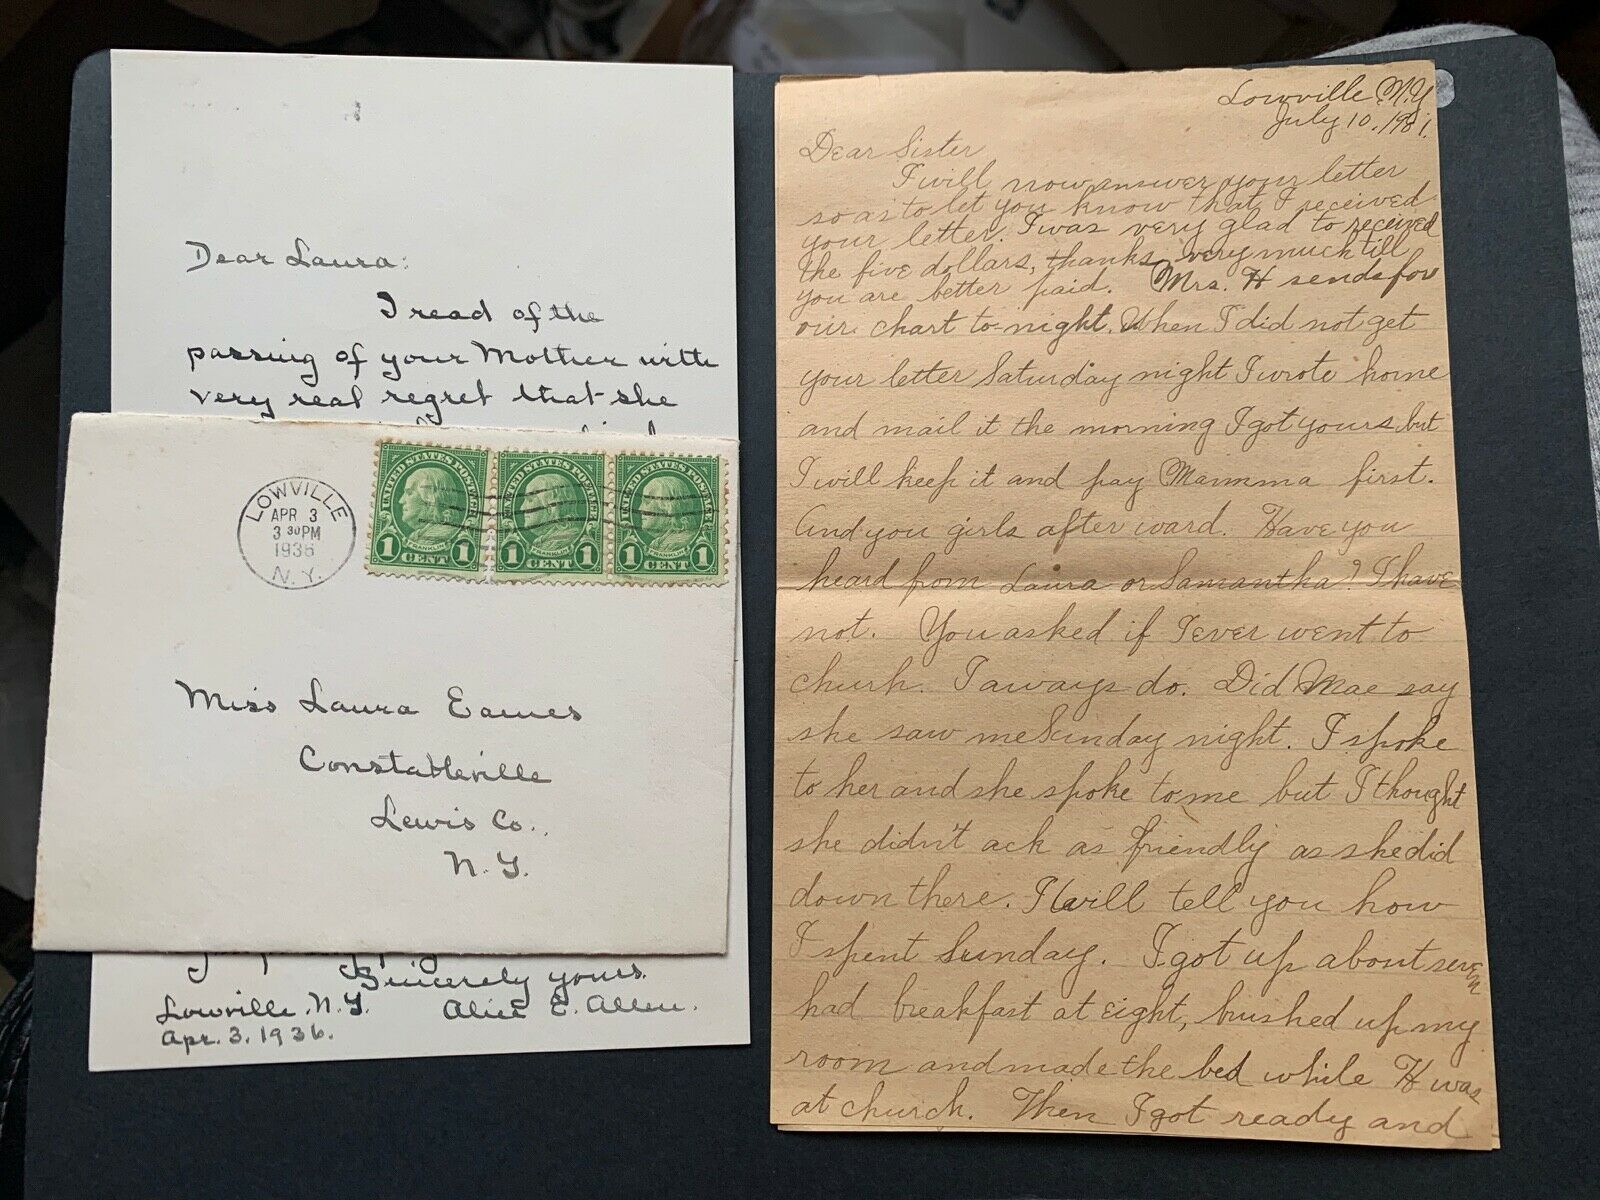 Dear Laura:
I read of the
passing of your Mother with
very real regret that she
LOWVILLE
APR 3
3 30 PM
1936
N.Y.
UNITED STATES POSTAGE
1 FRANKLIN 1
CENT
UNITED STATES POSTAGE
1 FRANKLIN 1
CENT
UNITED STATES POSTAGE
1 FRANKLIN 1
CENT
Miss Laura Eames
Constableville
Lewis Co.,
N.Y.
Sincerely yours.
Lowville, N.Y. Alice E. Allen.
Apr. 3. 1936.
Lowville N.Y.
July 10.
Dear Sister
I will now answer your letter
so as to let you know that I received
your letter. I was very glad to received
the five dollars, thanks very much till
you are better paid. Mrs. H sends for
our chart to-night. When I did not get
your letter Saturday night I wrote home
and mail it the morning I got yours but
I will keep it and pay Mamma first.
And you girls after ward. Have you
heard from Laura or Samantha? I have
not. You asked if I ever went to
churh. I aways do. Did Mae say
she saw me Sunday night. I spoke
to her and she spoke to me but I thought
she didn't ack as friendly as she did
down there. I will tell you how
I spent Sunday. I got up about seven
had breakfast at eight, brushed up my
room and made the bed while H was
at church. Then I got ready and